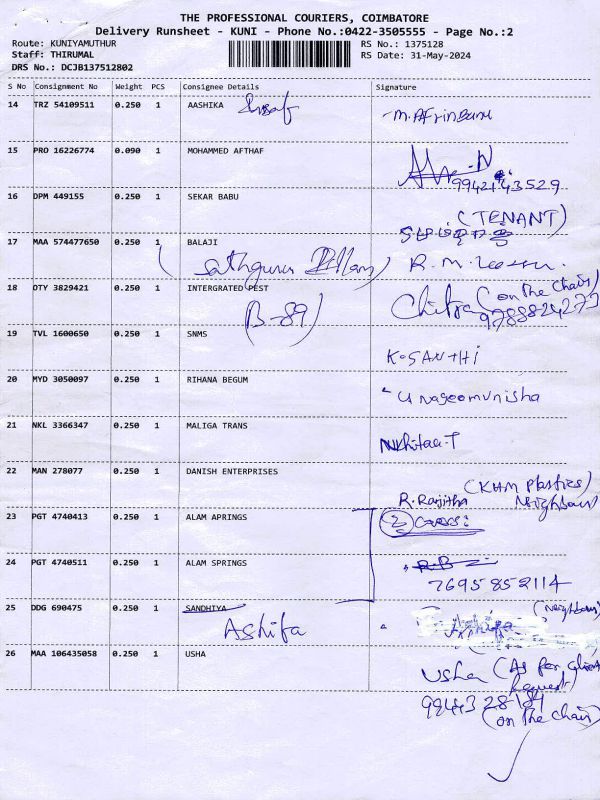 THE PROFESSIONAL COURIERS, COIMBATORE
Delivery Runsheet - KUNI - Phone No.:0422-3505555 - Page No.:2
Route: KUNIYAMUTHUR RS No.: 1375128
Staff: THIRUMAL RS Date: 31-May-2024
DRS No.: DCJB137512802
S No Consignment No Weight PCS Consignee Details Signature
14 TRZ 54109511 0.250 1 AASHIKA M. Afrin Banu
15 PRO 16226774 0.090 1 MOHAMMED AFTHAF
9942143529
16 DPM 449155 0.250 1 SEKAR BABU
(TENANT)
17 MAA 574477650 0.250 1 BALAJI
(Sathguru Illam) R.M.
18 DTY 3829421 0.250 1 INTERGRATED PEST Chitra (on the chair)
B-89) 9788824273
19 TVL 1600650 0.250 1 SNMS
K. SANTHI
20 MYD 3050097 0.250 1 RIHANA BEGUM
U nageomunisha
21 NKL 3366347 0.250 1 MALIGA TRANS
22 MAN 278077 0.250 1 DANISH ENTERPRISES
R. Ranjitha (KHM Plastics)
Neighbour
23 PGT 4740413 0.250 1 ALAM APRINGS 2
24 PGT 4740511 0.250 1 ALAM SPRINGS
7695852114
25 DDG 690475 0.250 1 SANDHIYA (Neighbour)
Ashifa
26 MAA 106435058 0.250 1 USHA
Usha (As per client
Request)
9944328184
(on the chair)